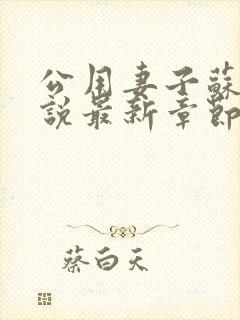 公用妻子蘇
說最新章節
蔡白天